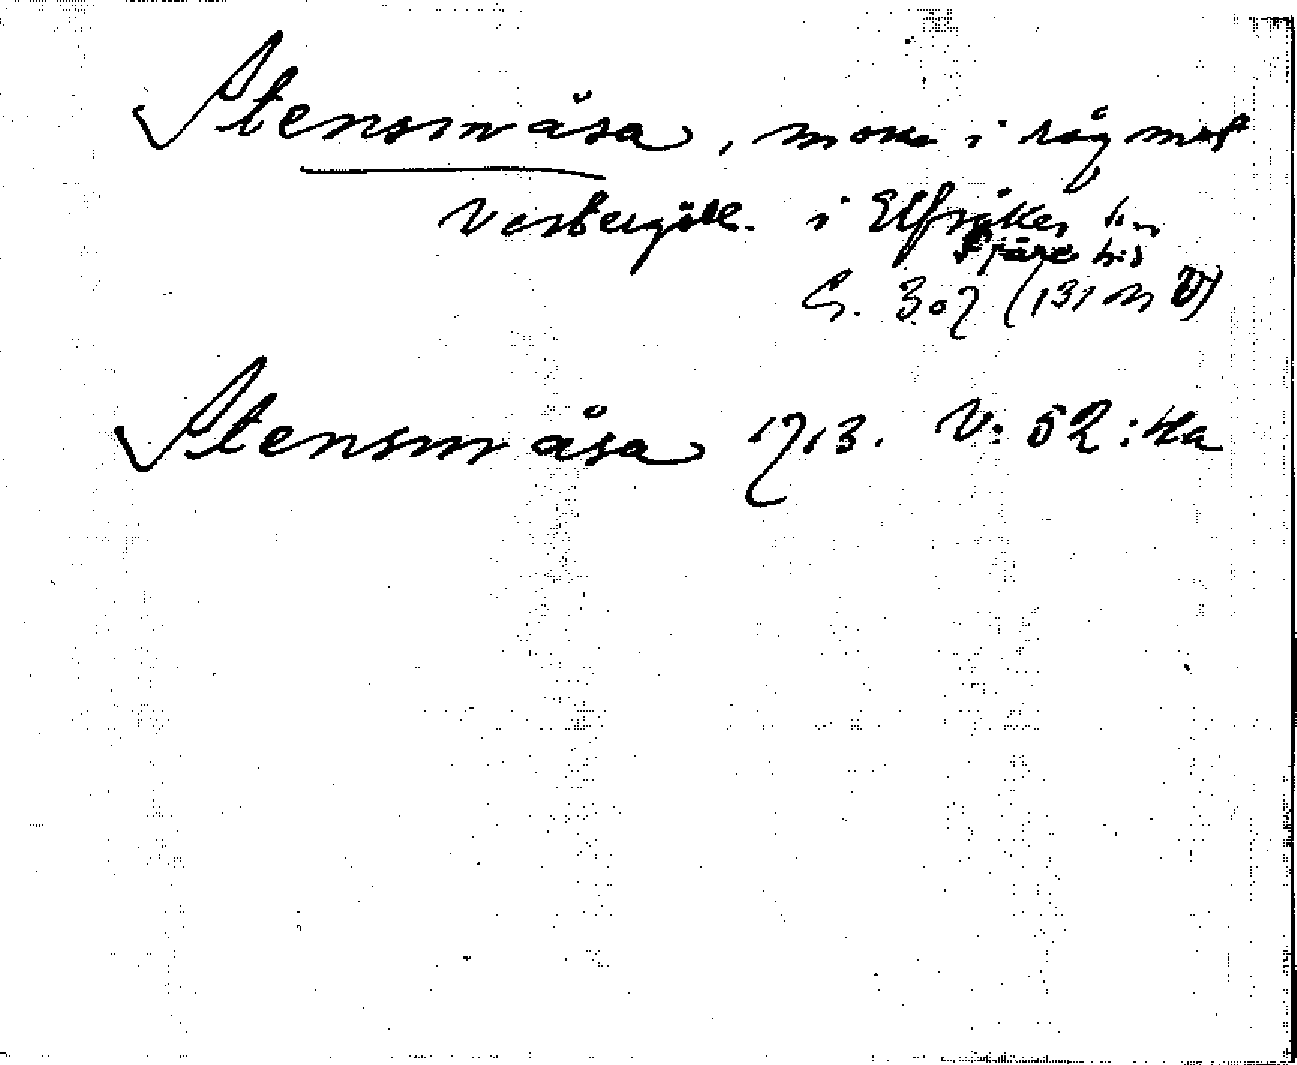 Stensmåsa, mosse i råg mot
Vestergötl. i Elfsåkers sn
Fjäre hd
G. 307 (131 m Ö)
Stensmåsa 1713. V: 52: 4a